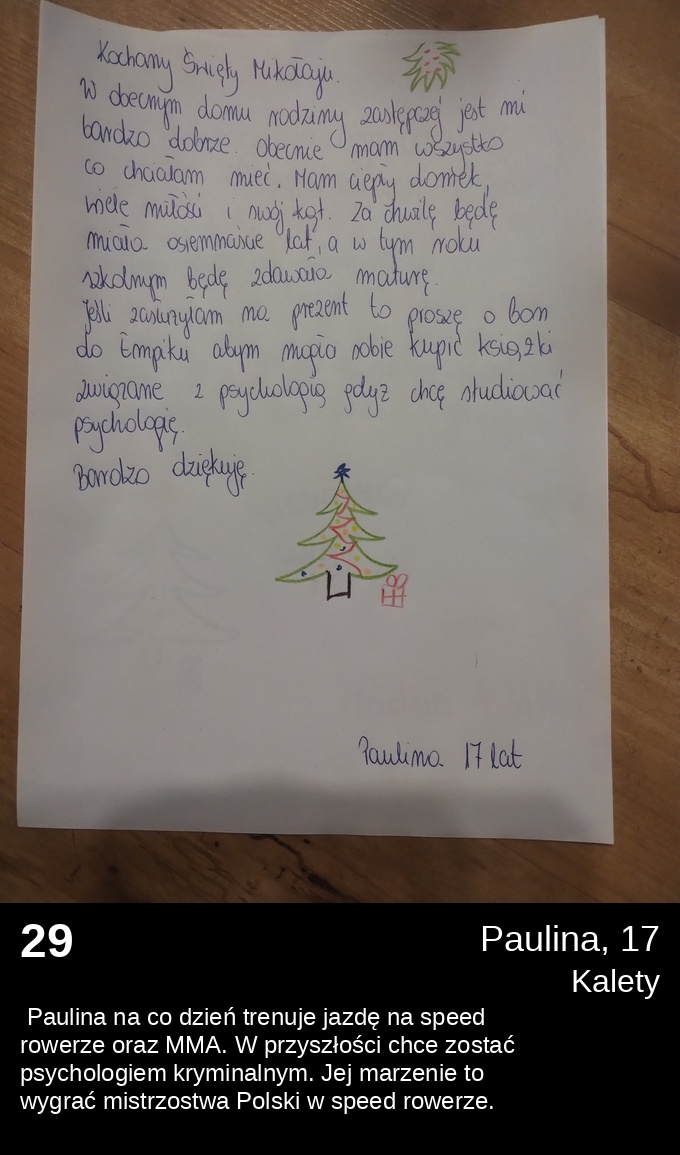 Kochany Święty Mikołaju.
W obecnym domu rodziny zastępczej jest mi
bardzo dobrze. Obecnie mam wszystko
co chciałam mieć. Mam ciepły domek,
wiele miłości i swój kąt. Za chwilę będę
miała osiemnaście lat, a w tym roku
szkolnym będę zdawała maturę.
Jeśli zasłużyłam na prezent to proszę o bon
do Empiku abym mogła sobie kupić książki
związane z psychologią gdyż chcę studiować
psychologię.
Bardzo dziękuję.
Paulina 17 lat
29
Paulina, 17
Kalety
Paulina na co dzień trenuje jazdę na speed
rowerze oraz MMA. W przyszłości chce zostać
psychologiem kryminalnym. Jej marzenie to
wygrać mistrzostwa Polski w speed rowerze.